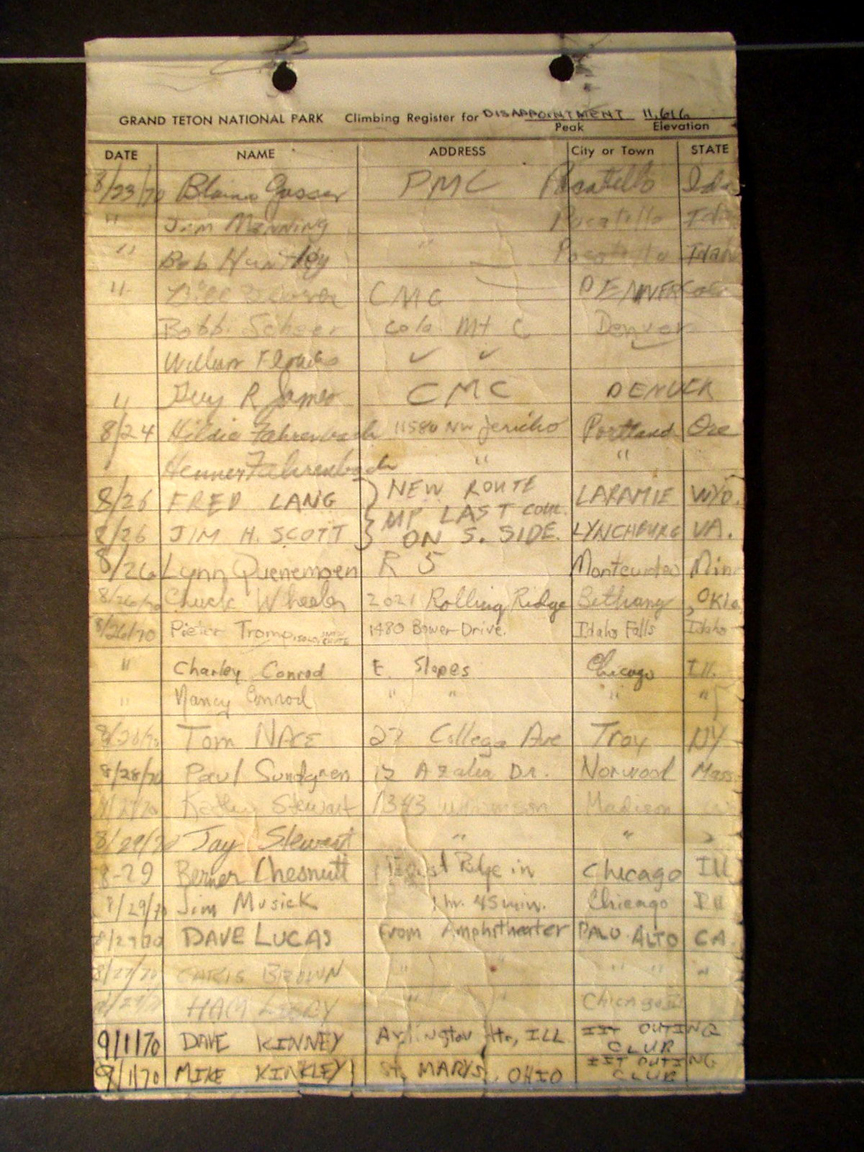 GRAND TETON NATIONAL PARK Climbing Register for DISAPPOINTMENT 11,616
Peak Elevation
DATE NAME ADDRESS City or Town STATE
8/23/70 PMC Pocatello Ida
" Jim Manning " Pocatello Ida
" Bob Huntley Pocatello Idaho
" CMC DENVER Colo
Bobbi Scheer Colo Mt C Denver
William ✓ ✓
" Guy R James CMC DENVER
8/24 Hildie Fahrenbach 11580 NW Jericho Portland Ore
Henner Fahrenbach " "
8/26 FRED LANG } NEW ROUTE LARAMIE WYO.
8/26 JIM H. SCOTT } UP LAST COUL. ON S. SIDE. LYNCHBURG VA.
8/26 Lynn Quenemoen R 5 Montevideo Minn
8/26/70 Chuck Wheeler 2021 Rolling Ridge Bethany, Okla
8/26/70 Pieter Tromp, 1480 Bower Drive. Idaho Falls Idaho
" Charley Conrad E. Slopes Chicago Ill.
" Nancy Conrod " " " "
Tom NACE 27 College Ave Troy NY
8/28/70 Paul Sundgren 12 Azalea Dr. Norwood Mass
Kathy Stewart 1343 Madison
8/29/70 Jay Stewart " " "
8-29 Chesnutt East Ridge in Chicago Ill
8/29/70 Jim Musick 1 hr. 45 min. Chicago Ill
8/29/70 DAVE LUCAS From Amphitheater PALO ALTO CA.
CHRIS BROWN " " " " "
HAM " " Chicago
9/1/70 DAVE KINNEY Arlington Hts, ILL IIT OUTING CLUB
9/1/70 MIKE KINKLEY St. MARYS, OHIO IIT OUTING CLUB